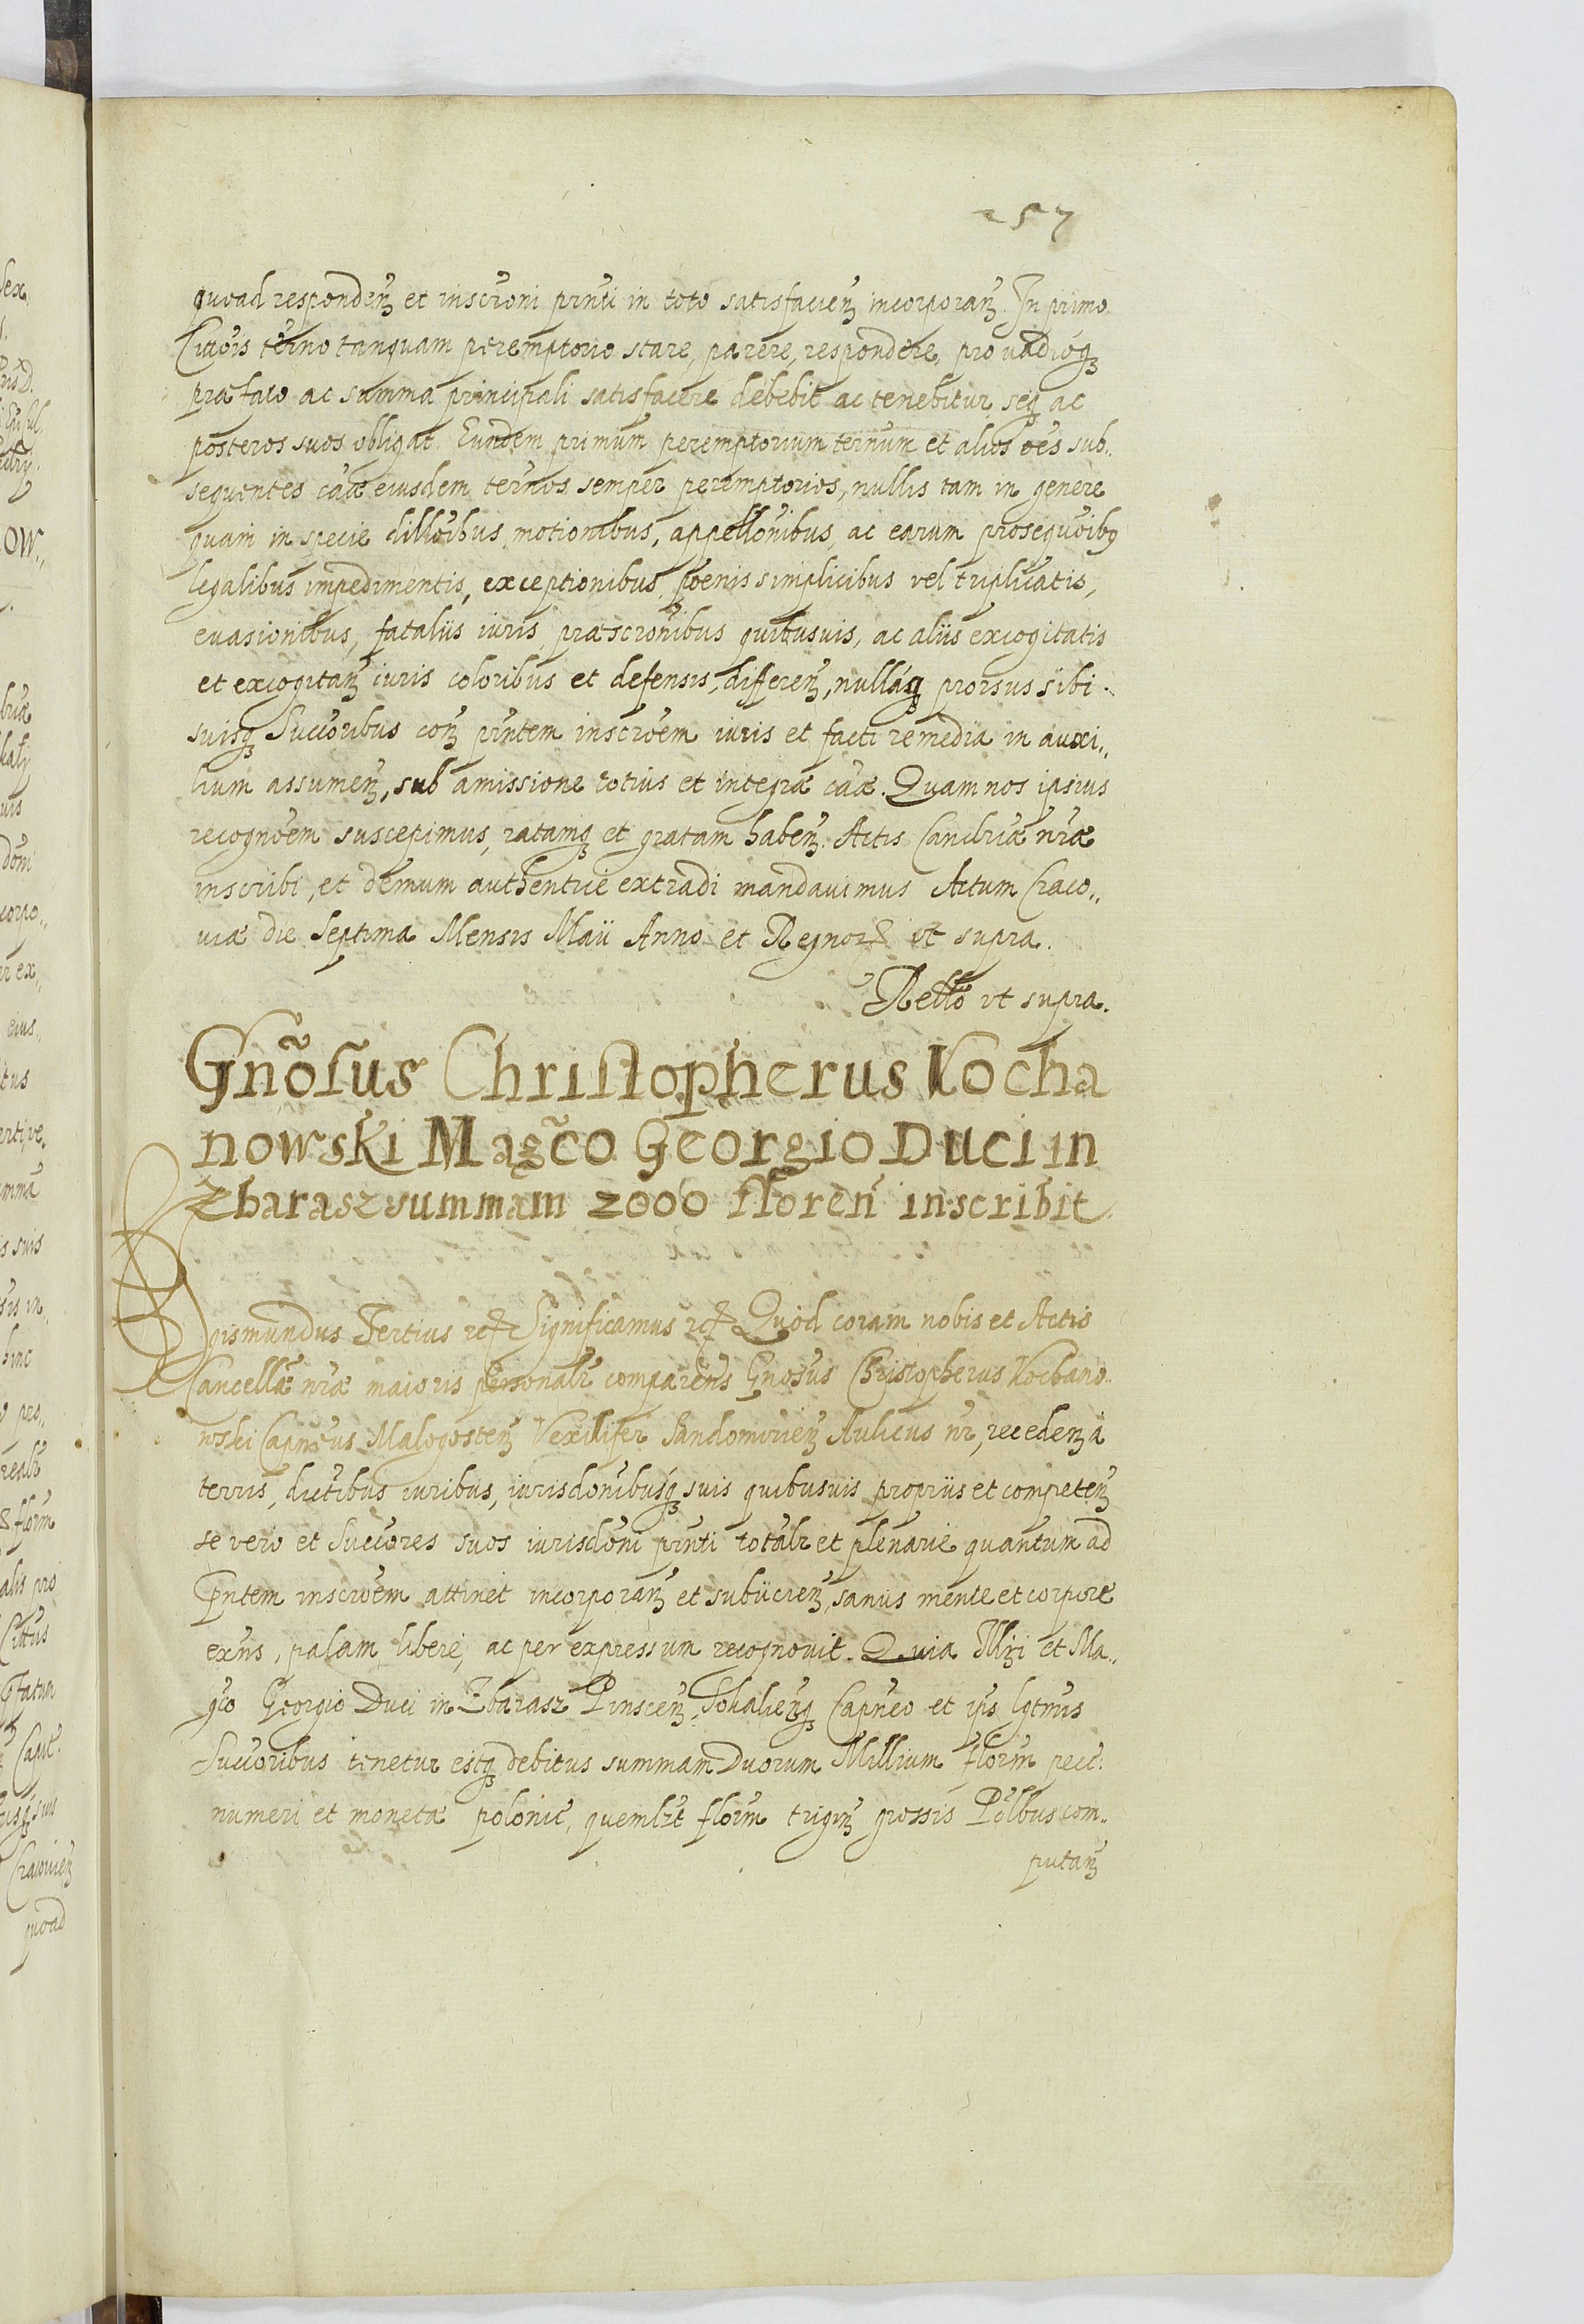 257
quoad respondeñ et inscr̃oni pr̃nti in toto satisfacieñ incorporañ. In primo
Citt̃ois ter̃no tanquam peremptorio stare, parere, respondere, pro vadioq;
præfato ac summa principali satisfacere debebit ac tenebitur, seq; ac
posteros suos obligat. Eundem primum peremptorium ter̃num et alios oẽs sub„
sequentes cãæ eiusdem ter̃nos semper peremptorios, nullis tam in genere
quam in specie dill̃oibus, motionibus, appell̃onibus, ac earum prosequũoibq
legalibus impedimentis, exceptionibus, pœnis simplicibus vel triplicatis,
euasionibus, fatalijs iuris, præscr̃onibus quibusuis, ac alijs excogitatis
et excogitañ iuris coloribus et defensis, differeñ, nullaq; prorsus sibi
suisq; Succ̃oribus coñ pr̃ntem inscr̃oem iuris et facti remedia in auxi„
lium assumeñ, sub amissione totius et integræ cãæ. Quam nos ipsius
recogñoem suscepimus, ratamq; et gratam habeñ. Actis Canc̃riæ nr̃æ
inscribi, et demum authentice extradi mandauimus Actum Craco„
uiæ die Septima Mensis Maij Anno et Regnoꝝ vt supra.
Rel̃lo vt supra.
Gñosus Christopherus Kocha
nowski Mag̃co Georgio Duci in
Zbarasz summam 2000 floreñ inscribit
Sigismundus Tertius rcꝝ Significamus rcꝝ Quod coram nobis et Actis
Cancell̃æ nr̃æ maioris personalr̃ comparens Gnõsus Christopherus Kochano„
wski Capñeus Malogosteñ Vexillifer Sandomirieñ Aulicus nr̃, recedeñ à
terris, dictibus iuribus, iurisdonibusq; suis quibusuis proprijs et competeñ
se vero et Succ̃ores suos iurisdõni pr̃nti totalr̃ et plenarie quantum ad
Pr̃ntem inscr̃oem attinet incorporañ et subijcieñ, sanus mente et corpore
exñs, palam, libere, ac per expressum recognouit. Quia Ill̃ri et Ma„
g̃co Georgio Duci in Zbarasz Pinsceñ, Sokalieñq; Capñeo et ips̃ lgtm̃is
Succ̃oribus tenetur estq; debitus summam Duorum Millium flor̃m pecc̃.
numeri et monetæ polonic̃, quemlr̃t flor̃m trigiñ grossis Pol̃lbus com„
putañ